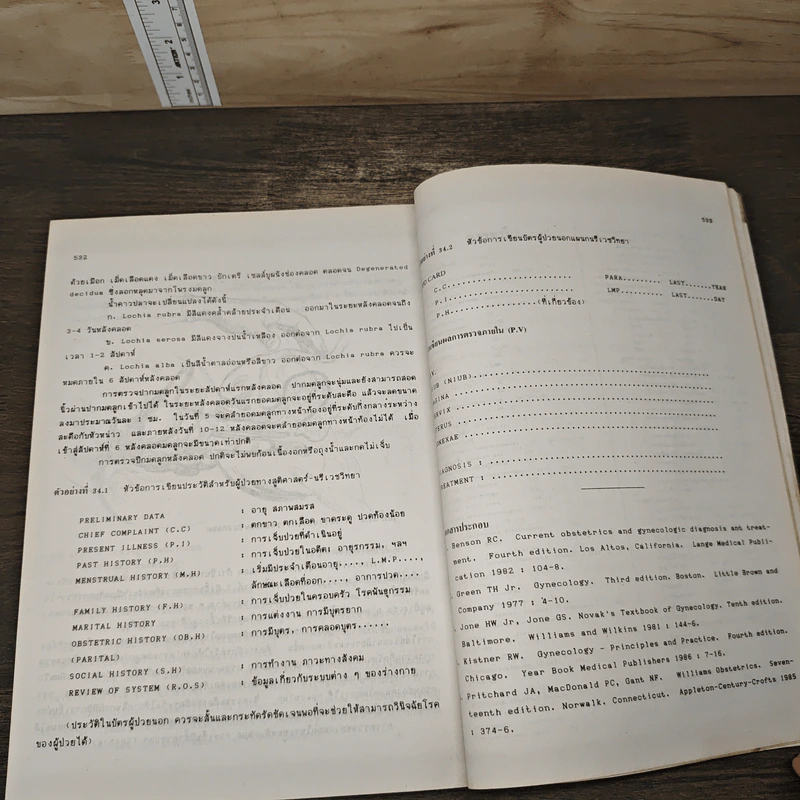 522
ด้วยเมือก เม็ดเลือดแดง เม็ดเลือดขาว บักเตรี เซลล์บุผนังช่องคลอด ตลอดจน Degenerated
decidua ซึ่งลอกหลุดมาจากโพรงมดลูก
น้ำคาวปลาจะเปลี่ยนแปลงได้ดังนี้
ก. Lochia rubra มีสีแดงคล้ำคล้ายประจำเดือน ออกมาในระยะหลังคลอดจนถึง
3-4 วันหลังคลอด
ข. Lochia serosa มีสีแดงจางปนน้ำเหลือง ออกต่อจาก Lochia rubra ไปเป็น
เวลา 1-2 สัปดาห์
ค. Lochia alba เป็นสีน้ำตาลอ่อนหรือสีขาว ออกต่อจาก Lochia rubra ควรจะ
หมดภายใน 6 สัปดาห์หลังคลอด
การตรวจปากมดลูกในระยะสัปดาห์แรกหลังคลอด ปากมดลูกจะนุ่มและยังสามารถสอด
นิ้วผ่านปากมดลูกเข้าไปได้ ในระยะหลังคลอดวันแรกยอดมดลูกจะอยู่ที่ระดับสะดือ แล้วจะลดขนาด
ลงมาประมาณวันละ 1 ซม. ในวันที่ 5 จะคลำยอดมดลูกทางหน้าท้องอยู่ที่ระดับกึ่งกลางระหว่าง
สะดือกับหัวหน่าว และภายหลังวันที่ 10-12 หลังคลอดจะคลำยอดมดลูกทางหน้าท้องไม่ได้ เมื่อ
เข้าสู่สัปดาห์ที่ 6 หลังคลอดมดลูกจะมีขนาดเท่าปกติ
การตรวจปีกมดลูกหลังคลอด ปกติจะไม่พบก้อนเนื้องอกหรือถุงน้ำและกดไม่เจ็บ
ตัวอย่างที่ 34.1 หัวข้อการเขียนประวัติสำหรับผู้ป่วยทางสูติศาสตร์-นรีเวชวิทยา
PRELIMINARY DATA : อายุ สภาพสมรส
CHIEF COMPLAINT (C.C) : ตกขาว ตกเลือด ขาดระดู ปวดท้องน้อย
PRESENT ILLNESS (P.I) : การเจ็บป่วยที่ดำเนินอยู่
PAST HISTORY (P.H) : การเจ็บป่วยในอดีต: อายุรกรรม, ฯลฯ
MENSTRUAL HISTORY (M.H) : เริ่มมีประจำเดือนอายุ...., L.M.P....,
ลักษณะเลือดที่ออก...., อาการปวด....
FAMILY HISTORY (F.H) : การเจ็บป่วยในครอบครัว โรคพันธุกรรม
MARITAL HISTORY : การแต่งงาน การมีบุตรยาก
OBSTETRIC HISTORY (OB.H) : การมีบุตร, การคลอดบุตร......
(PARITAL)
SOCIAL HISTORY (S.H) : การทำงาน ภาวะทางสังคม
REVIEW OF SYSTEM (R.O.S) : ข้อมูลเกี่ยวกับระบบต่าง ๆ ของร่างกาย
(ประวัติในบัตรผู้ป่วยนอก ควรจะสั้นและกระทัดรัดชัดเจนพอที่จะช่วยให้สามารถวินิจฉัยโรค
ของผู้ป่วยได้)
523
34.2 หัวข้อการเขียนบัตรผู้ป่วยนอกแผนกนรีเวชวิทยา
CARD
C.C. PARA......... LAST......YEAR
P.I. LMP.......... LAST......DAY
P.H. (ที่เกี่ยวข้อง)
ผลการตรวจภายใน (P.V)
(NIUB)
DIAGNOSIS :
TREATMENT :
ประกอบ
Benson RC. Current obstetrics and gynecologic diagnosis and treat-
ment. Fourth edition. Los Altos, California. Lange Medical Publi-
cation 1982 : 104-8.
Green TH Jr. Gynecology. Third edition. Boston. Little Brown and
Company 1977 : 4-10.
Jone HW Jr, Jone GS. Novak's Textbook of Gynecology. Tenth edition.
Baltimore. Williams and Wilkins 1981 : 144-6.
Kistner RW. Gynecology - Principles and Practice. Fourth edition.
Chicago. Year Book Medical Publishers 1986 : 7-16.
Pritchard JA, MacDonald PC, Gant NF. Williams Obstetrics. Seven-
teenth edition. Norwalk, Connecticut. Appleton-Century-Crofts 1985
: 374-6.